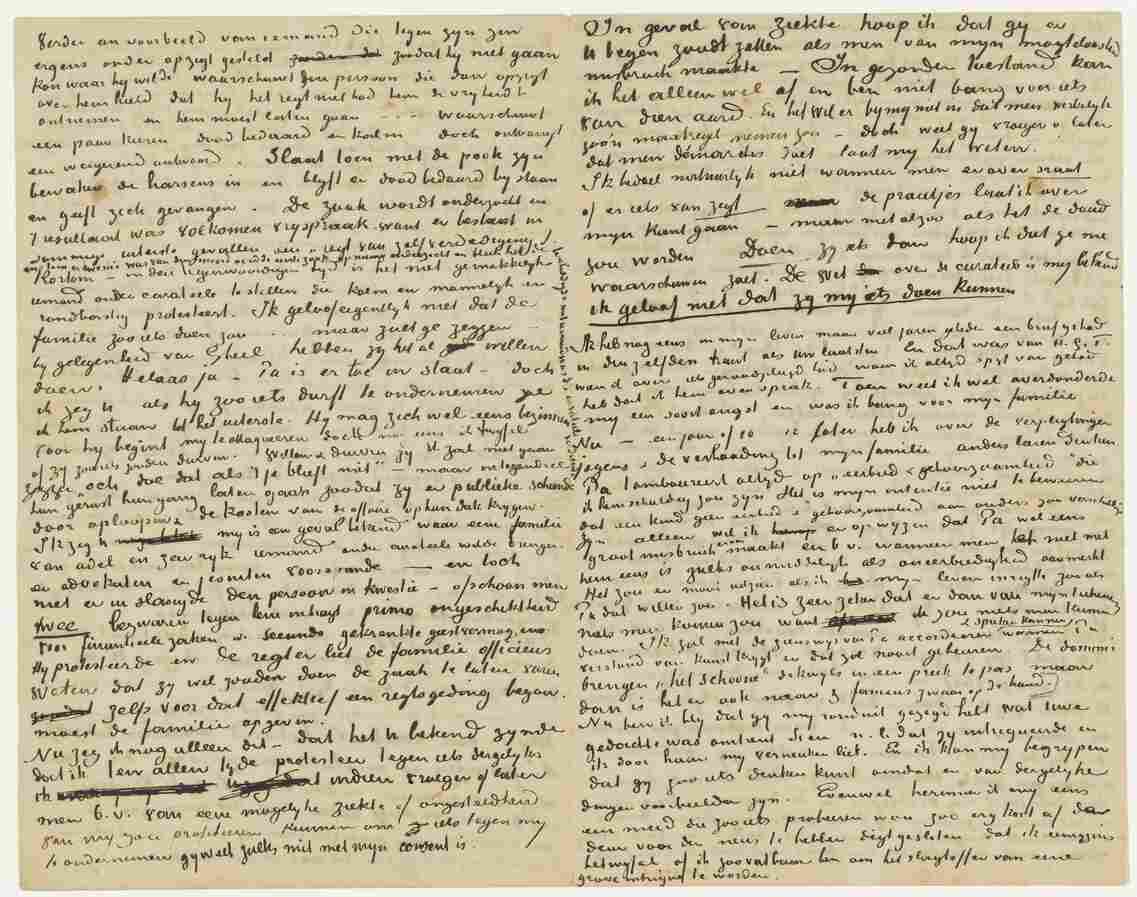 Verder een voorbeeld van iemand die tegen zyn zin
ergens onder opzigt gesteld zoodat hy niet gaan
kon waar hy wilde waarschuwt den persoon die dan opzigt
over hem hield dat hy het regt niet had hem de vryheid te
ontnemen en hem moest laten gaan - - - waarschuwt
een paar keeren doodbedaard en kalm doch ontvangt
een weigerend antwoord. Slaat toen met de pook zyn
bewaker de harsens in en blyft er doodbedaard by staan
en geeft zich gevangen. De zaak wordt onderzocht en
't resultaat was volkomen vryspraak want er bestaat in
sommige uiterste gevallen een "regt van zelfverdediging".
Kortom - in den tegenwoordigen tyd is het niet gemakkelyk
iemand onder curateele te stellen die kalm en mannelyk en
rondborstig protesteert. Ik geloof eigenlyk niet dat de
familie zooiets doen zou - maar zult ge zeggen -
by gelegenheid van Gheel hebben zy het al willen
doen. Helaas ja - Pa is er toe in staat - doch
ik zeg U als hy zooiets durft te ondernemen
ik hem staan tot het uiterste. Hy mag zich wel eens bezinnen
voor hy begint my te attaqueeren doch nog eens ik twyfel
of zy zooiets zouden durven. Willen & durven zy 't zal niet gaan
zeggen "och doe dat als 't je blieft niet" - maar integendeel
hun gerust hun gang laten gaan zoodat zy er publieke schande
door oploopen & de kosten van de affaire op hun dak krygen.
Ik zeg U my is een geval bekend waar eene familie
van adel en zeer ryk iemand onder curateele wilde brengen.
en advokaten en jesuiten vooraande - en toch
niet er in slaagde den persoon in kwestie - ofschoon men
twee bezwaren tegen hem inbragt primo ongeschiktheid
voor finantieele zaken & secundo gekrenkte geestvermogens.
Hy protesteerde en de regter liet de familie officieus
weten dat zy wel zouden doen de zaak te laten varen
zelfs voor dat effektief een regtsgeding began.
moest de familie opgeven.
Nu zeg ik nog alleen dit - dat het U bekend zynde
dat ik ten allen tyde protesteer tegen iets dergelyks
ik indien vroeger of later
men b.v. van eene mogelyke ziekte of ongesteldheid
van my zou profiteeren kunnen om iets tegen my
te ondernemen gy weet zulks niet met myn consent is.
In geval van ziekte hoop ik dat gy er
U tegen zoudt zetten als men van myn magteloosheid
misbruik maakte - In gezonden toestand kan
ik het alleen wel af en ben niet bang voor iets
van dien aard. En het wil er by my niet in dat men werkelyk
zoo'n maatregel nemen zou - doch weet gy vroeger o. later
dat men démarches doet laat my het weten.
Ik bedoel natuurlyk niet wanneer men er over praat
of er iets van zegt de praatjes laat ik over
myn kant gaan - maar niet alzoo als het de daad
zou worden Doen zy iets dan hoop ik dat ge me
waarschuwen zult. De wet over de curateele is my bekend
ik geloof niet dat zy my iets doen kunnen
Ik heb nog eens in myn leven maar vel jaren gelede een brief gehad
in den zelfden trant als Uw laatsten En dat was van H.G.T.
wien d over iets geraadpleegd had waar ik altyd spyt van gehad
heb dat ik hem er over sprak. Toen weet ik wel overdonderde
my een soort angst en was ik bang voor myn familie
Nu - een jaar of 10 12 later heb ik over de verpligtingen
jegens & de verhouding tot myn familie anders leeren denken.
Pa tamboereert altyd op "eerbied & gehoorzaamheid" die
ik hem schuldig zou zyn. Het is myn intentie niet te beweren
dat een kind geen eerbied & gehoorzaamheid aan ouders zou verschuldigd
zyn alleen wil ik er op wyzen dat Pa wel eens
groot misbruik ervan maakt en b.v. wanneer men het niet met
hem eens is zulks onmiddelyk als oneerbiedigheid aanmerkt
Het zou er mooi uitzien als ik myn leven inrigtte zoo als
Pa dat willen zou. Het is zeer zeker dat er dan van myn teekenen
niets meer komen zou want ik zou niets meer kunnen
doen. Ik zal met de zienswys van Pa accordeeren wanneer Pa
verstand van kunst krygt en dat zal nooit gebeuren. De dominés
brengen "het schoone" dikwyls in een preek te pas maar
dan is het er ook naar & famens zwaar op de hand.
Nu ben ik bly dat gy my ronduit gezegd hebt wat Uwe
gedachte was omtrent Sien n.l. dat zy intrigueerde en
ik door haar my verneuken liet. En ik kan my begrypen
dat gy zoo iets denken kunt omdat er van dergelyke
dingen voorbeelden zyn. Evenwel herinner ik my eens
een meid die zooiets probeeren wou zoo erg kort af de
deur voor den neus te hebben digtgesloten dat ik eenigzins
betwyfel of ik zoo vatbaar ben om het slagtoffer van eene
grove intrigue te worden.